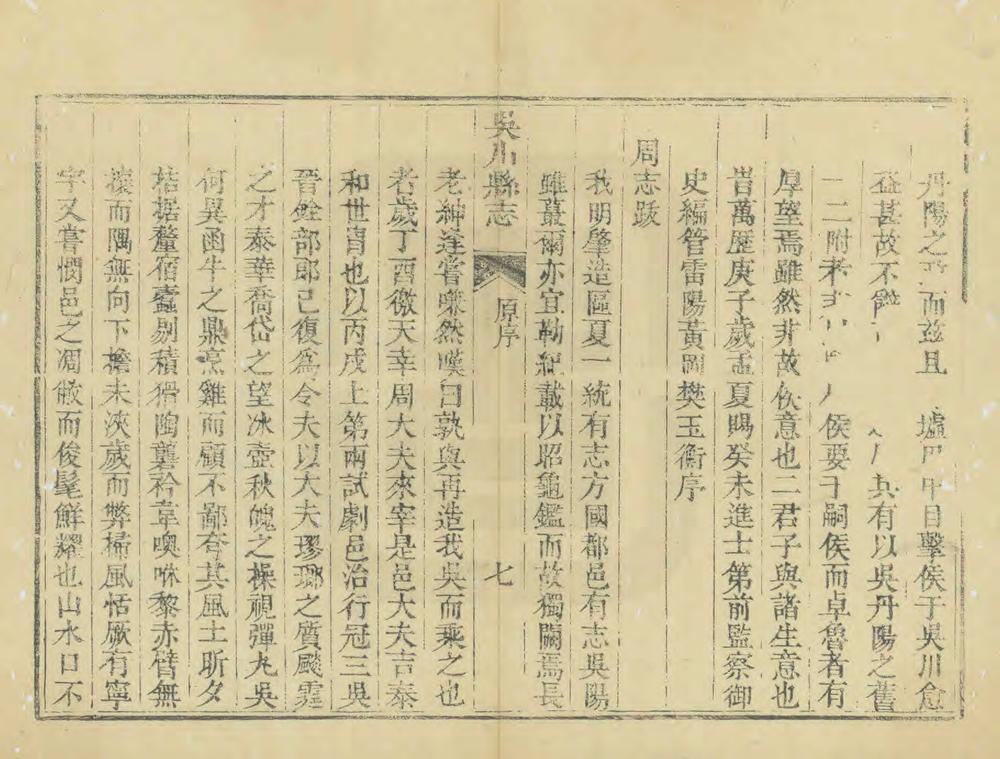 丹陽之而茲且墟目擊侯于吳川愈
益甚故不共有以吳丹陽之舊
二附侯要于嗣侯而卓魯者有
厚望焉雖然非故侯意也二君子與諸生意也
旹萬歷庚子歲孟夏賜癸未進士第前監察御
史編管雷陽黃岡樊玉衡序
周志跋
我明肇造區夏一統有志方國郡邑有志吳陽
雖蕞爾亦宜勒紀載以昭龜鑑而故獨闕焉長
吳川縣志 原序 七
老紳逢嘗嘅然嘆曰孰與再造我吳而乘之也
者歲丁酉徼天幸周大夫來宰是邑大夫吉泰
和世冑也以丙戌上第兩試劇邑治行冠三吳
晉銓部郎已復爲令夫以大夫璆瑯之質颷霆
之才泰華喬岱之望冰壺秋魄之操視彈丸吳
何異函牛之鼎烹雞而顧不鄙夷其風土昕夕
拮据釐宿蠹剔積猾陶襲衿韋噢咻黎赤臂無
攘而隅無向下檐未浹歲而弊掃風恬厥有寧
宇又嘗憫邑之凋敝而俊髦鮮耀也山水口不